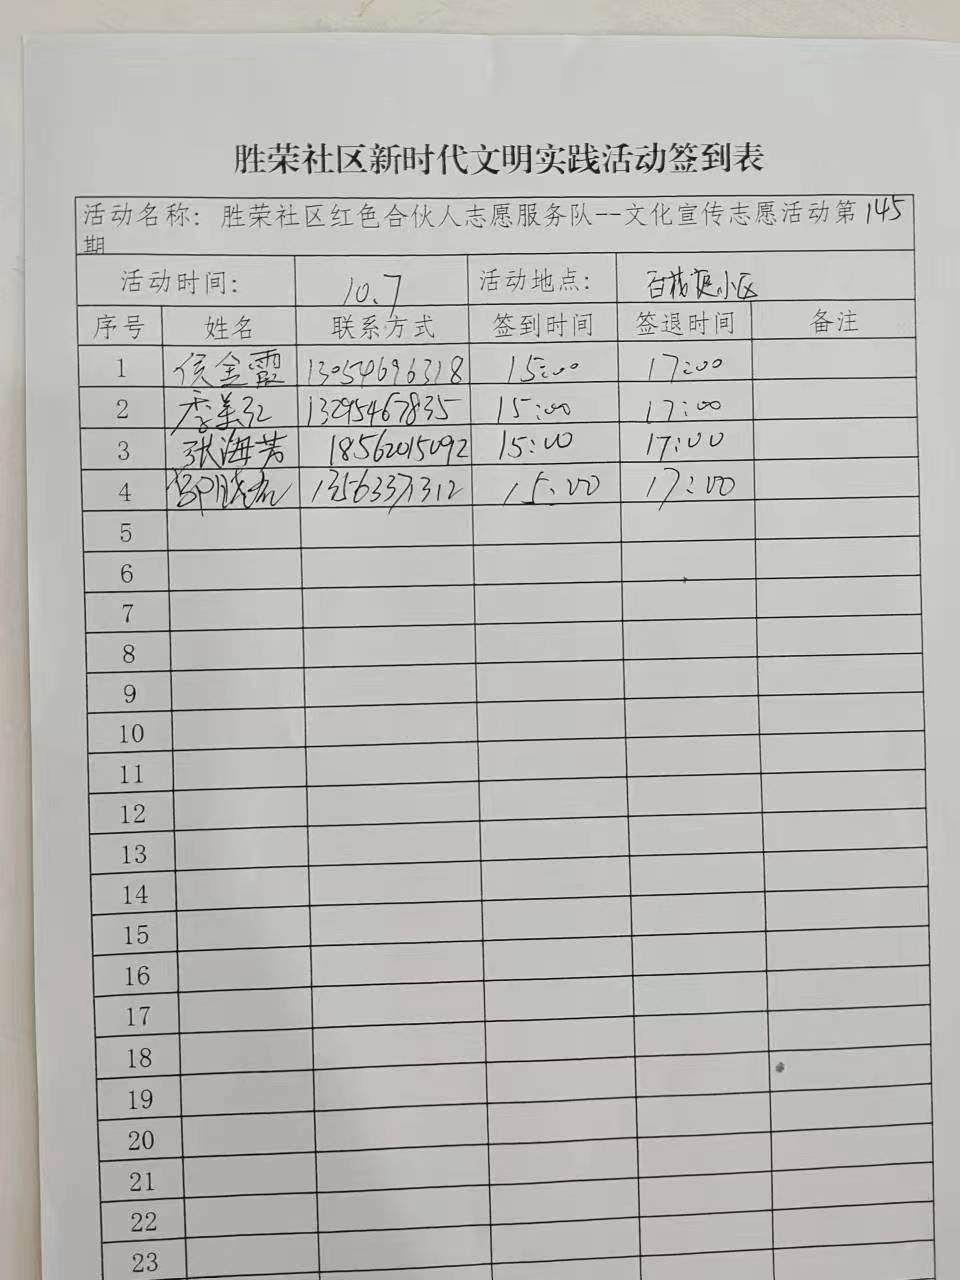 胜荣社区新时代文明实践活动签到表
活动名称：胜荣社区红色合伙人志愿服务队--文化宣传志愿活动第145
期
活动时间： 10.7 活动地点： 小区
序号 姓名 联系方式 签到时间 签退时间 备注
1 侯金霞 13054696318 15:00 17:00
2 季美红 13295467835 15:00 17:00
3 张海芳 18562015092 15:00 17:00
4 邹晓 15:00 17:00
5
6
7
8
9
10
11
12
13
14
15
16
17
18
19
20
21
22
23